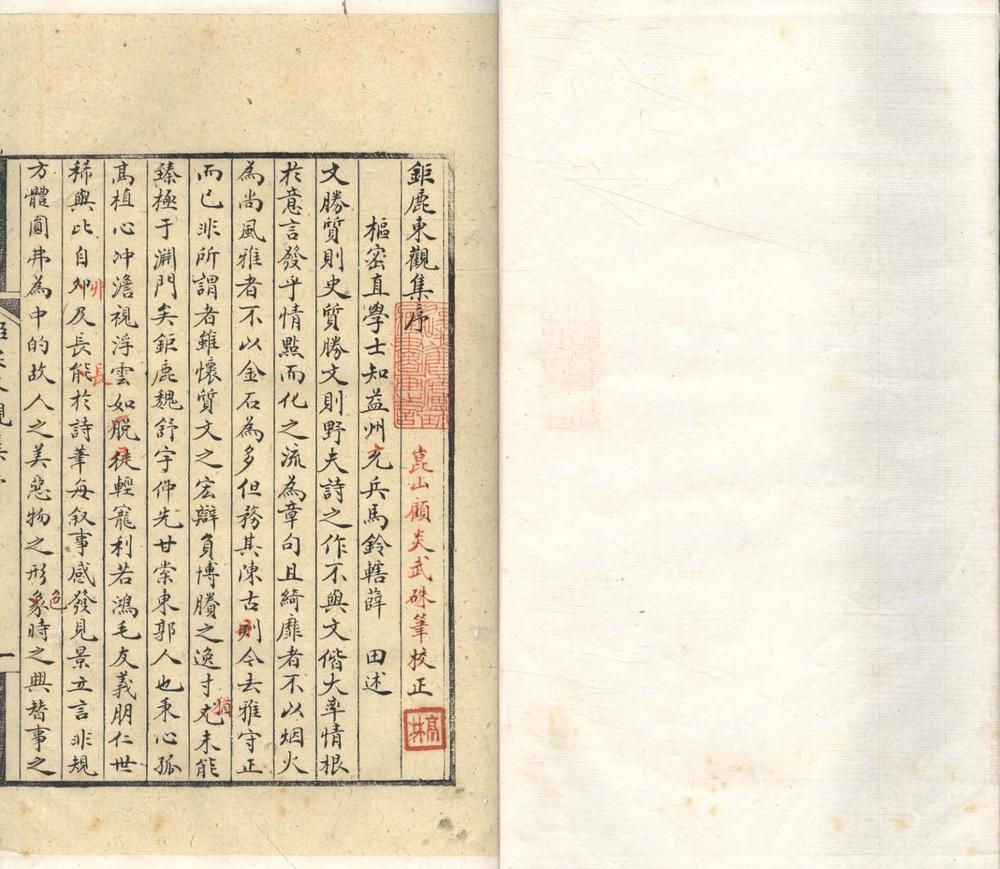 鉅鹿東觀集序
崑山顧炎武硃筆校正
樞密直學士知益州充兵馬鈐轄薛　田述
文勝質則史質勝文則野夫詩之作不與文偕大率情根
於意言發乎情點而化之流為章句且綺靡者不以烟火
為尚風雅者不以金石為多但務其陳古則今去雅守正
而已非所謂者雖懷質文之宏辯負博賸之逸才尤未能
猶
臻極于淵門矣鉅鹿魏舒字仲先甘棠東郭人也秉心孤
高植心冲澹視浮雲如脱徒輕寵利若鴻毛友義朋仁世
稀與比自卯及長能於詩筆每叙事感發見景立言非規
丱
長
方體圓弗為中的故人之美惡物之形象時之興替事之
色